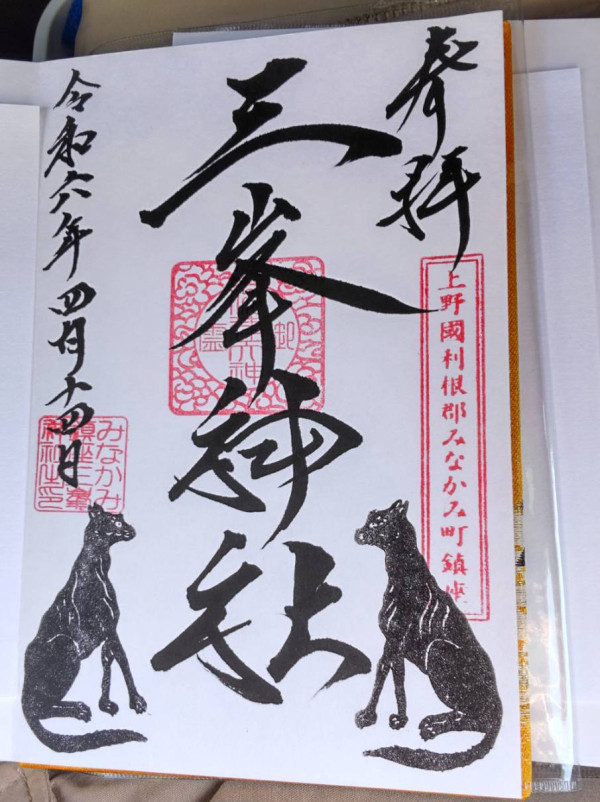 奉拝
上野國利根郡みなかみ町鎮座
三峯神社
みなかみ
鎮座三峯
神社之印
令和六年四月十四日